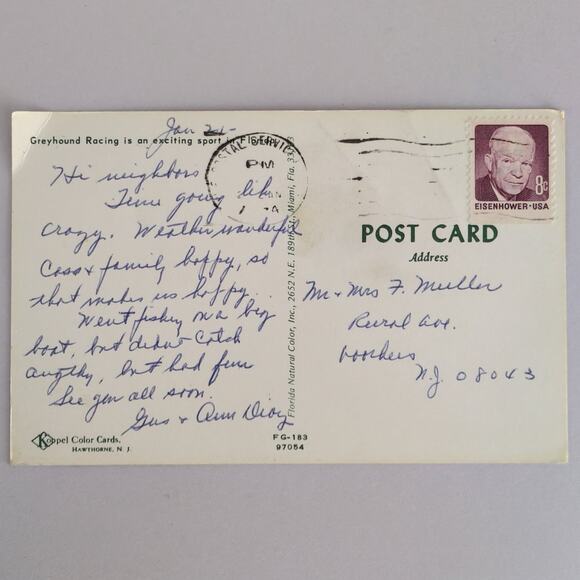 Greyhound Racing is an exciting sport in FLORIDA
Jan 21-
POSTAL SERVICE
PM
Hi neighbors
Time going like
crazy. Weather wonderful
family happy, so
that makes us happy.
Went fishing on a big
boat, but didnt catch
anything, but had fun
See you all soon.
Gus & Ann
Koppel Color Cards,
HAWTHORNE, N. J.
Florida Natural Color, Inc., 2652 N.E. 189th St., Miami, Fla. 33163
FG-183
97054
8c
EISENHOWER·USA
POST CARD
Address
Mr & Mrs F. Muller
Rural Ave.
Voorhees
N.J. 08043